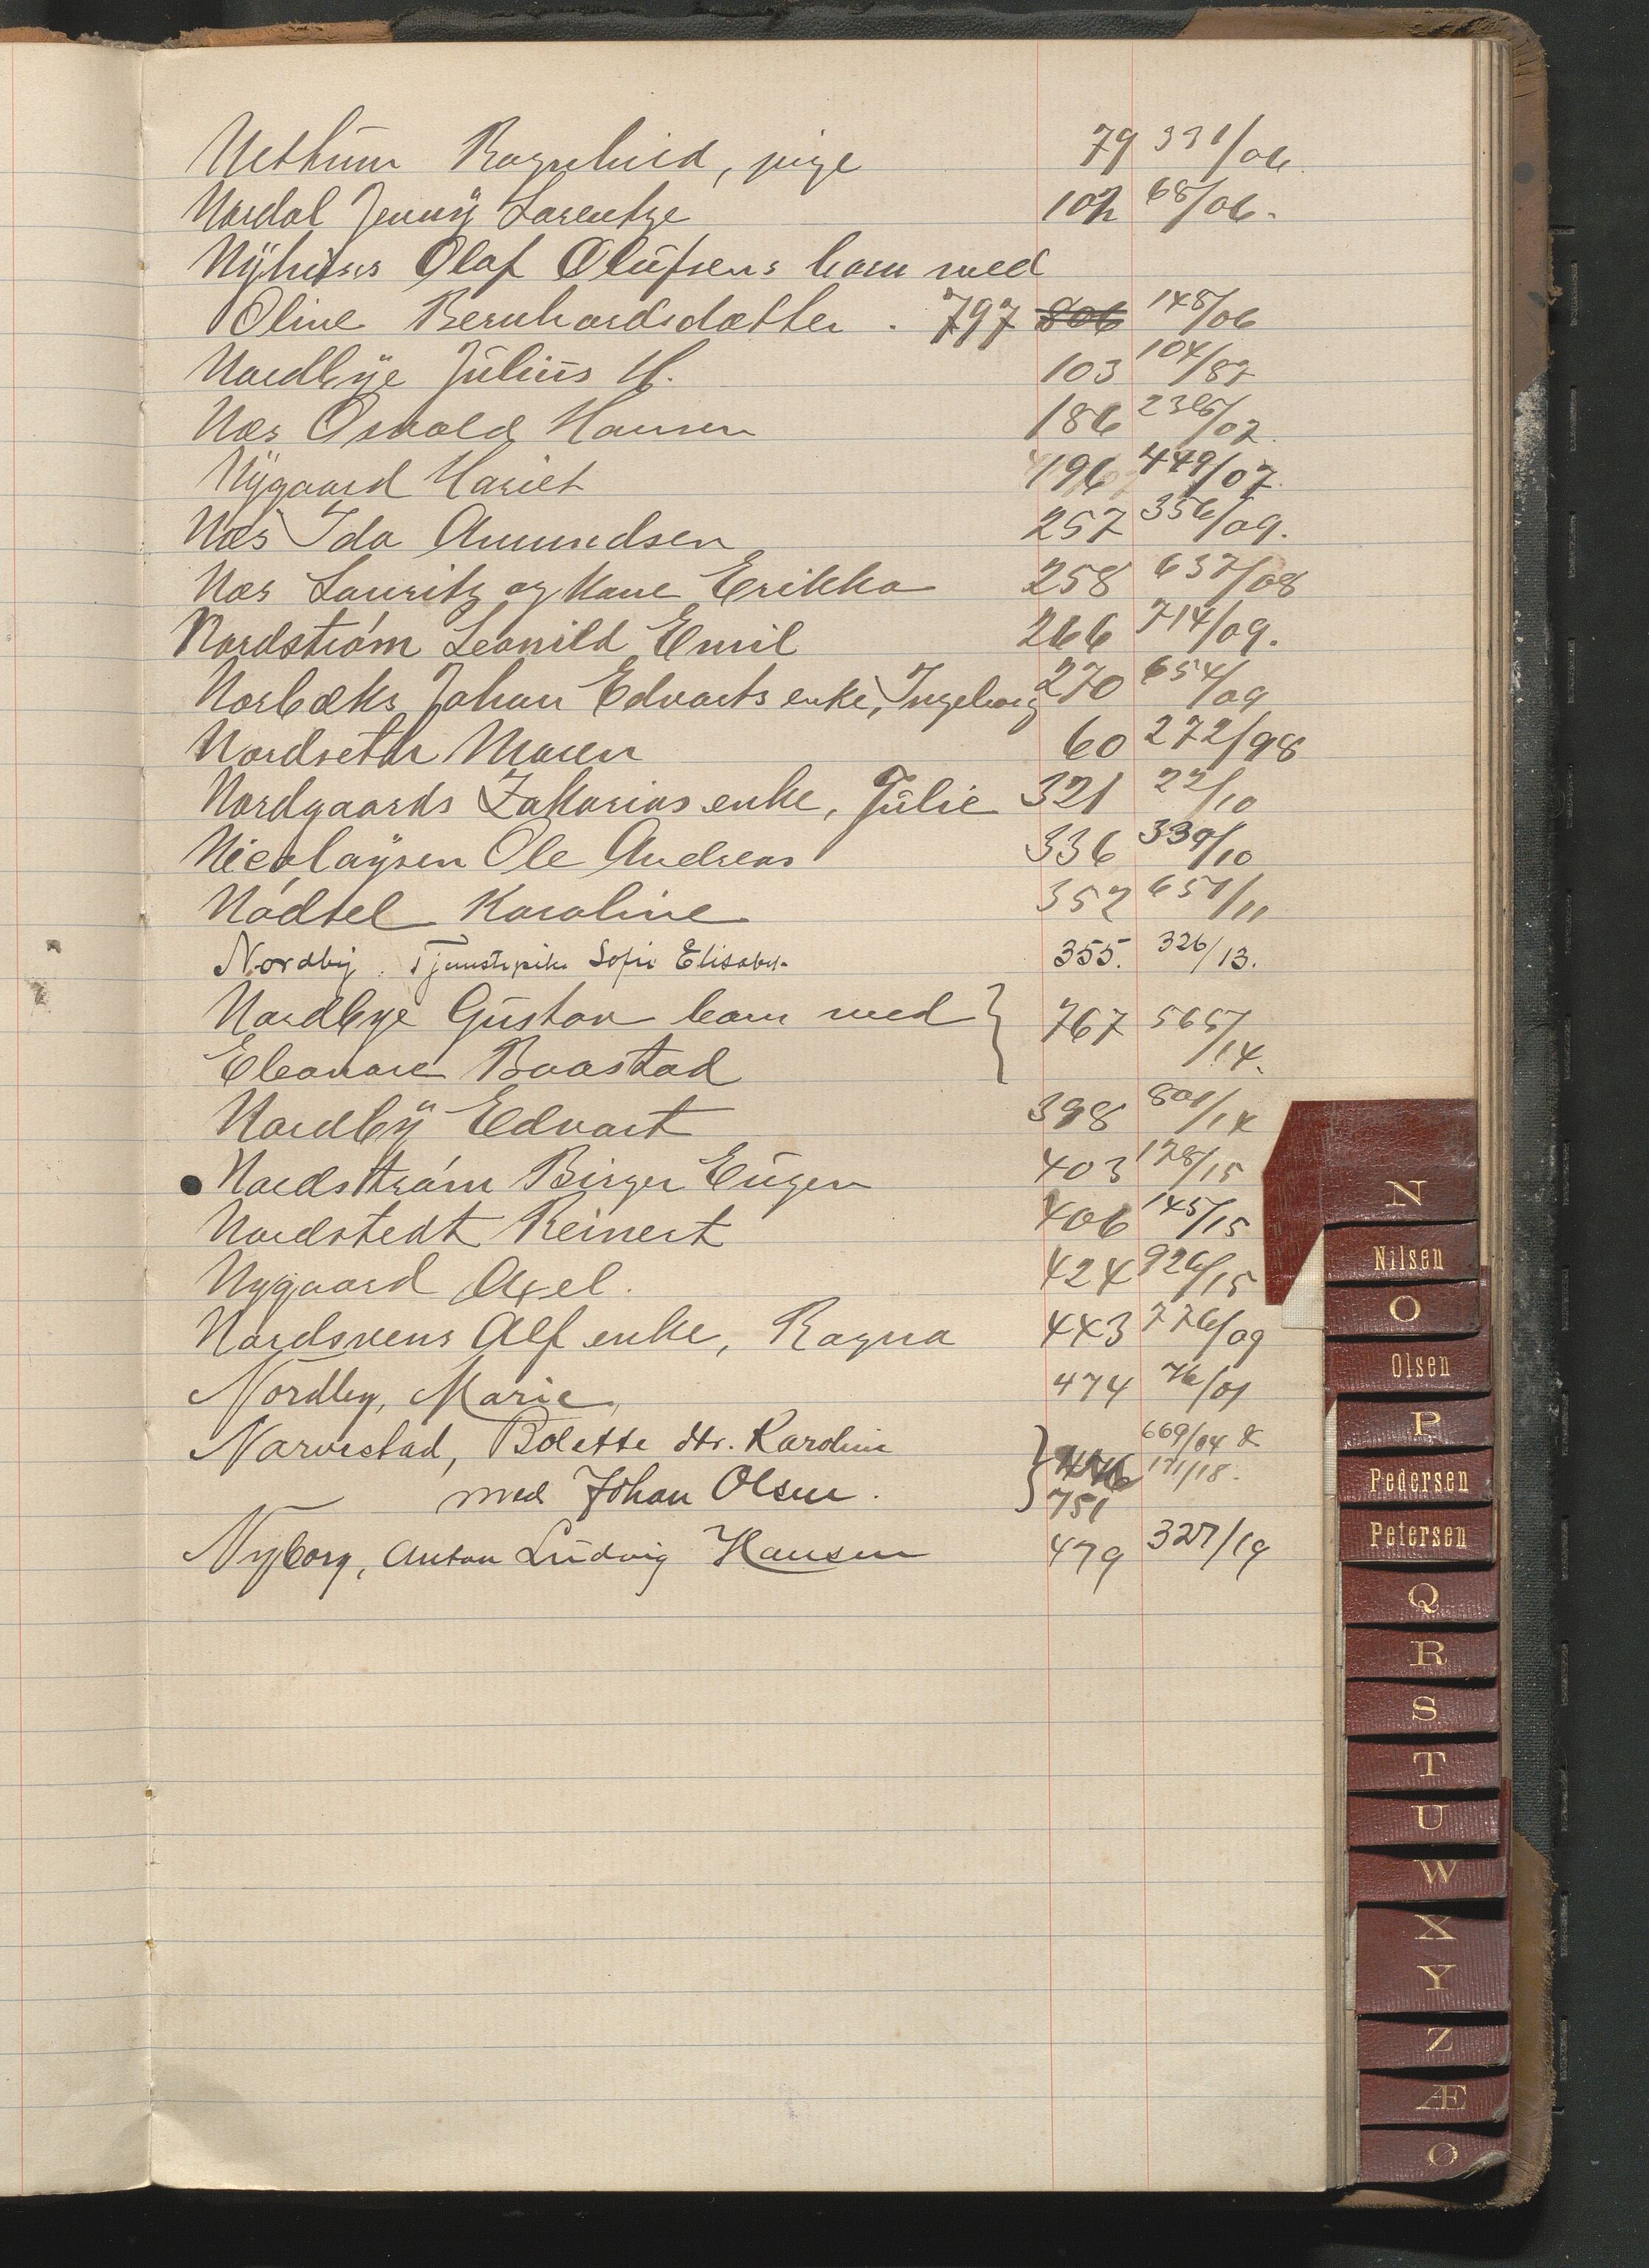 Nethum Ragnhild, pige 79 331/06.
Nordal Jenny Larentze 102 68/06.
Nyhuses Olaf Olufsens barn med
Oline Bernhardsdatter . 797 806 148/06
Nordbye Julius H. 103 104/87
Næs Osvald Hansen 186 2385/02.
Nygaard Hariet 196 449/07.
Næs Ida Amundsen 257 356/09.
Næs Lauritz og Kone Erikka 258 637/08
Nordström Leonild Emil 266 714/09.
Norbæks Johan Edvarts enke, Ingeborg 270 654/09
Nordseth Maren 60 272/98
Nordgaards Zakarias enke, Julie 321 22/10
Nicolaysen Ole Andreas 336 339/10
Nödtel Karoline 352 651/11
Nordby. Tjenestepike Sofie Elisabet. 355. 326/13.
Nordbye Gustav barn med } 767 565/14.
Eleonore Baastad
Nordby Edvart 398 801/14
Nordström Birger Eugen 403 178/15
Nordstedt Reinert 406 145/15
Nygaard Axel. 424 926/15
Nordsvens Alf enke, Ragna 443 776/09
Nordby, Marie, 474 76/01
Narvestad, Bolette dtr. Karoline } 669/04 &
med Johan Olsen. 171/18.
751
Nyborg, Anton Ludvig Hansen 479 327/19
N
Nilsen
O
Olsen
P
Pedersen
Petersen
Q
R
S
T
U
W
X
Y
Z
Æ
Ø